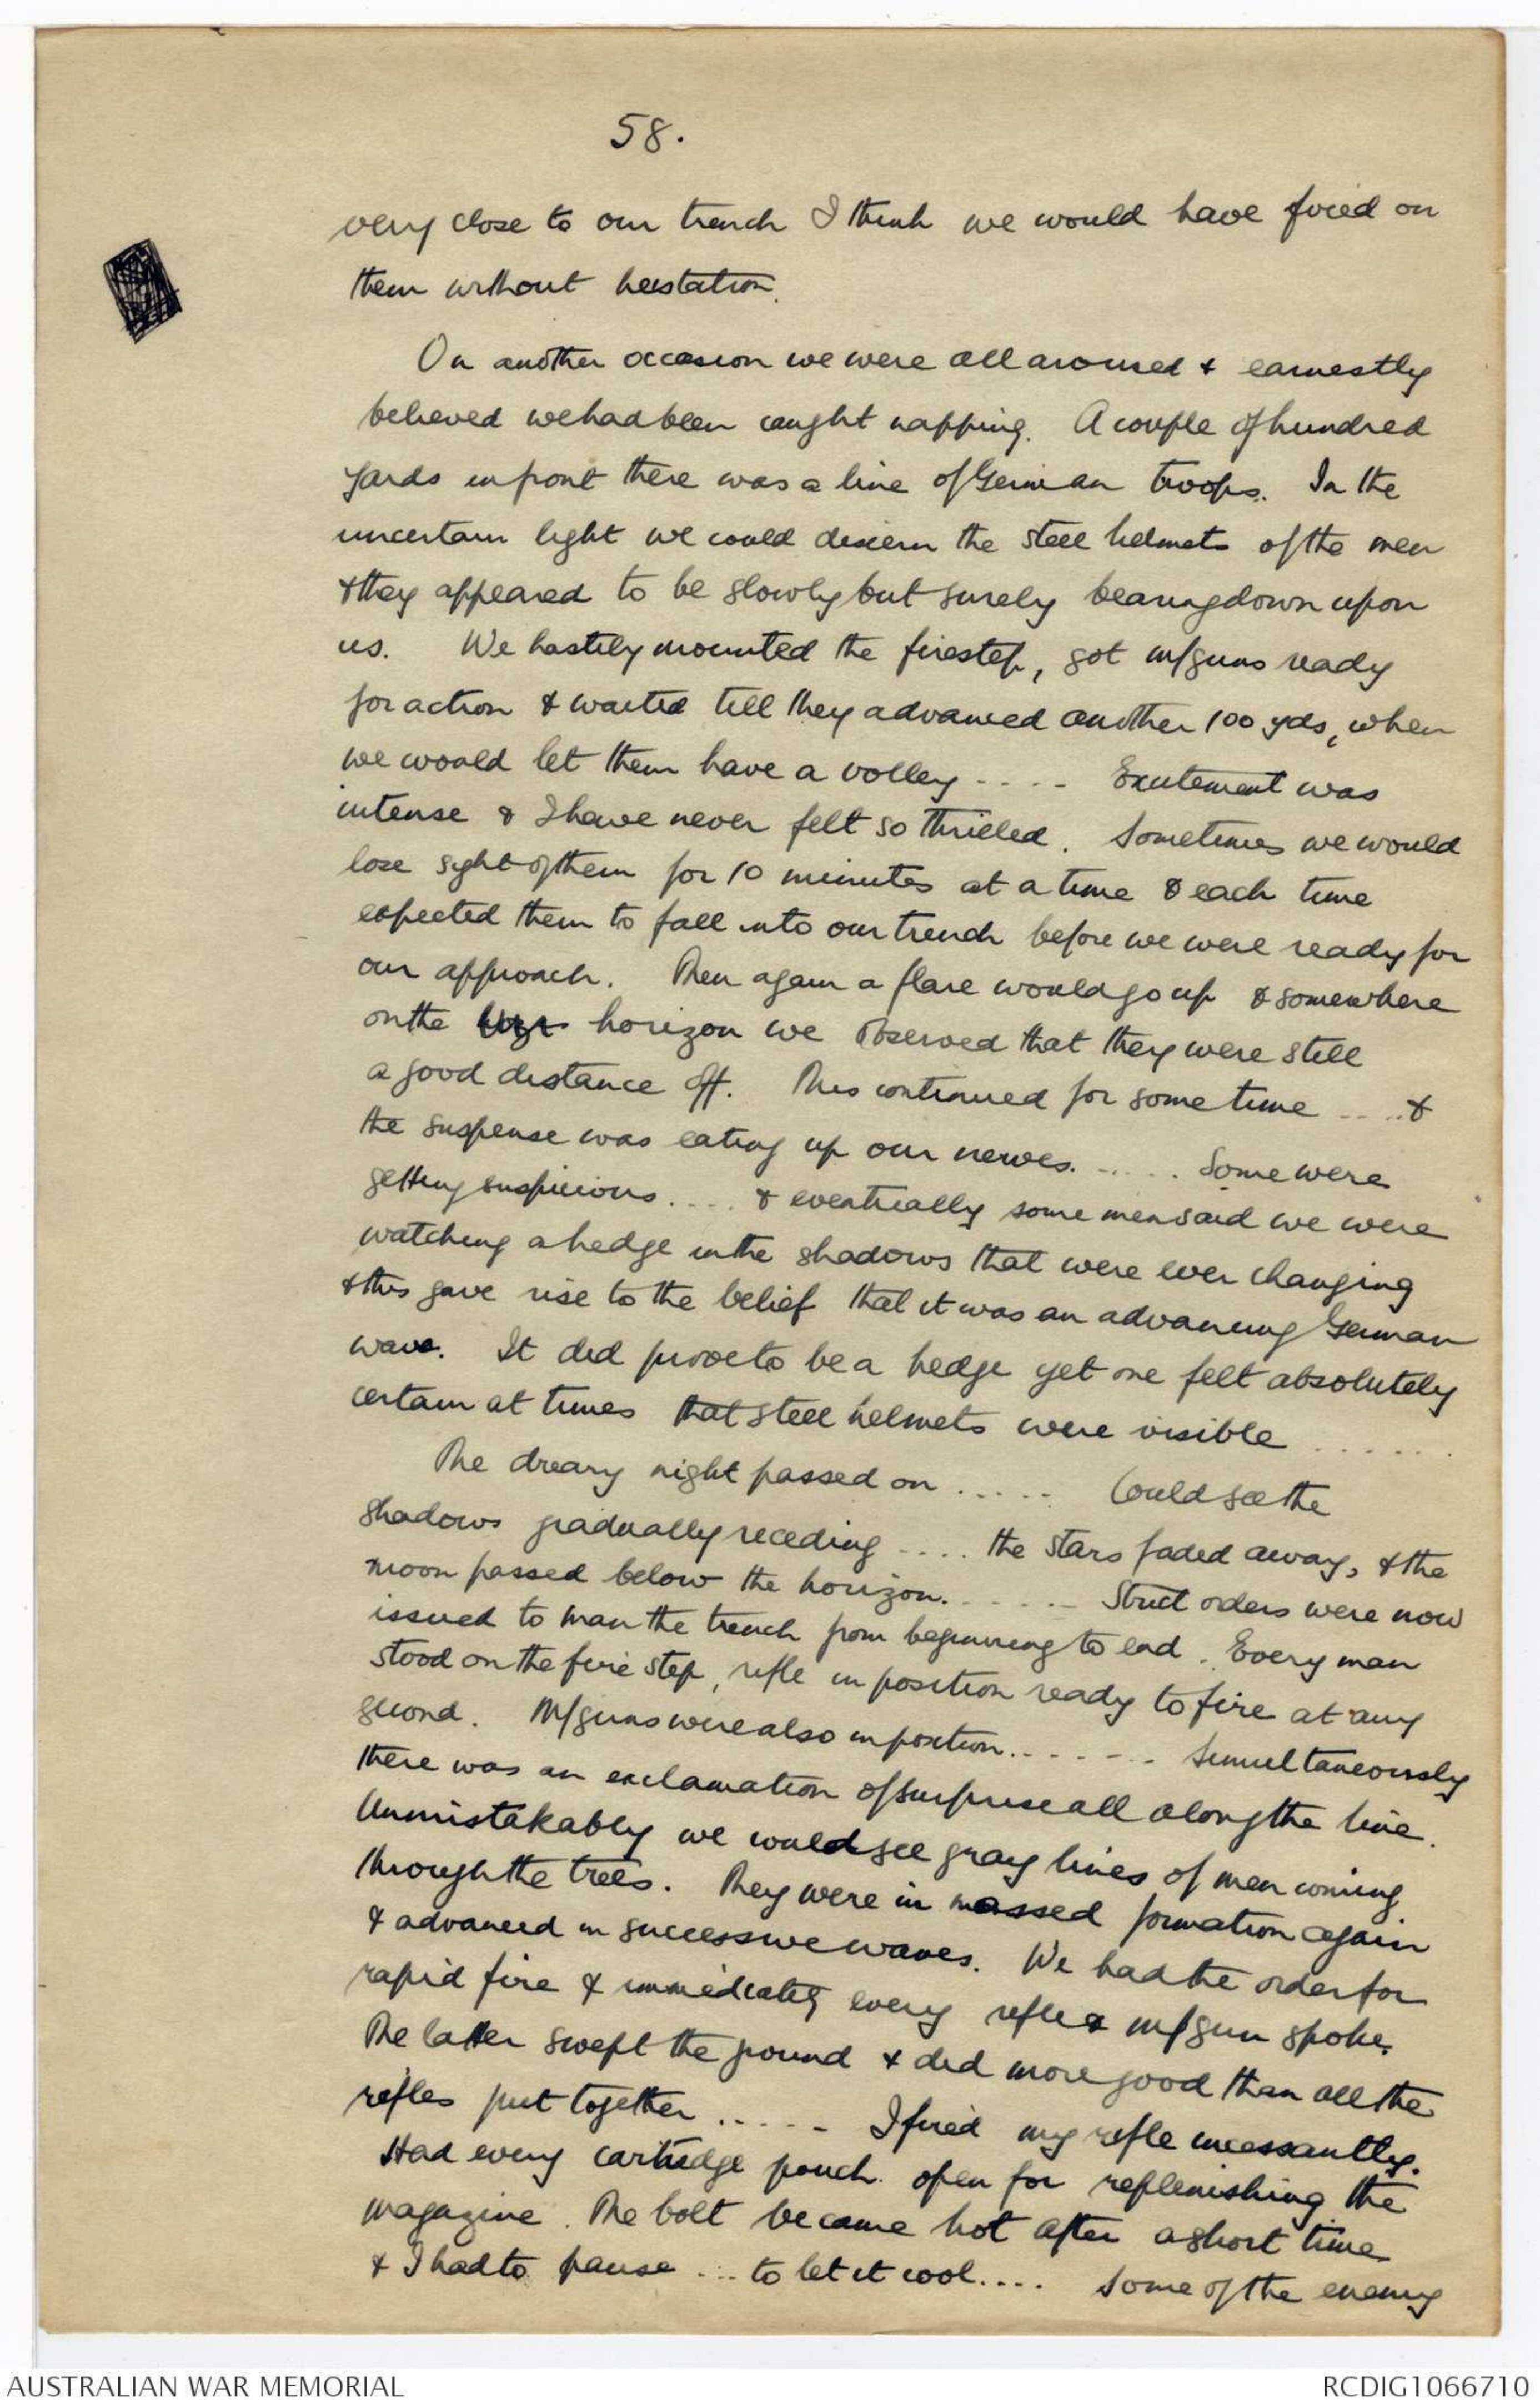 58.
very close to our trench I think we would have fired on
them without hesitation.
On another occasion we were all aroused & earnestly
believed we had been caught napping. A couple of hundred
yards in front there was a line of German troops. In the
uncertain light we could discern the steel helmets of the men
& they appeared to be slowly but surely bearing down upon
us. We hastily mounted the firestep, got m/guns ready
for action & waited till they advanced another 100 yds, when
we would let them have a volley .... Excitement was
intense & I have never felt so thrilled. Sometimes we would
lose sight of them for 10 minutes at a time & each time
expected them to fall into our trench before we were ready for
our approach. Then again a flare would go up & somewhere
on the horizon we observed that they were still
a good distance off. This continued for some time .... &
the suspense was eating up our nerves. ..... Some were
getting suspicious .... & eventually some men said we were
watching a hedge in the shadows that were ever changing
& this gave rise to the belief that it was an advancing German
wave. It did prove to be a hedge yet one felt absolutely
certain at times that steel helmets were visible ......
The dreary night passed on ..... Could see the
shadows gradually receding .... the stars faded away, & the
moon passed below the horizon. ..... Strict orders were now
issued to man the trench from beginning to end. Every man
stood on the fire step, rifle in position ready to fire at any
second. M/guns were also in position....... Simultaneously
there was an exclamation of surprise all along the line.
Unmistakably we could see gray lines of men coming
through the trees. They were in massed formation again
& advanced in successive waves. We had the order for
rapid fire & immediately every rifle & m/gun spoke.
The latter swept the ground & did more good than all the
rifles put together ..... I fired my rifle incessantly.
Had every cartridge pouch open for replenishing the
magazine. The bolt became hot after a short time
& I had to pause ... to let it cool.... Some of the enemy
AUSTRALIAN WAR MEMORIAL
RCDIG1066710